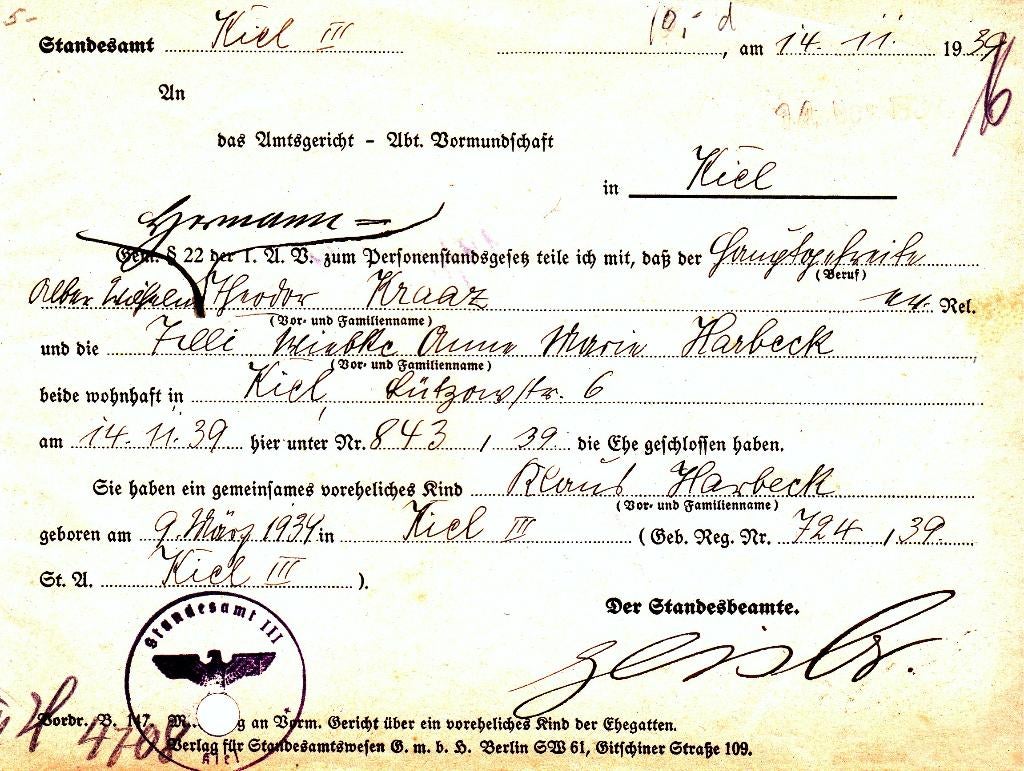 5-
Standesamt Kiel III 10,- d, am 14. 11. 1939
An
das Amtsgericht - Abt. Vormundschaft
in Kiel
Hermann =
Gem. § 22 der 1. A. V. zum Personenstandsgesetz teile ich mit, daß der Hauptgefreite
(Beruf)
Wilhelm Theodor Kraaz ev. Rel.
(Vor- und Familienname)
und die Tilli Wiebke Anne Marie Harbeck
(Vor- und Familienname)
beide wohnhaft in Kiel, Lützowstr. 6
am 14. 11. 39 hier unter Nr. 843 / 39 die Ehe geschlossen haben.
Sie haben ein gemeinsames voreheliches Kind Klaus Harbeck
(Vor- und Familienname)
geboren am 9. März 1939 in Kiel III (Geb. Reg. Nr. 724 / 39
St. A. Kiel III ).
Der Standesbeamte.
Standesamt III
Kiel
Vordr. B. 147. M g an Vorm. Gericht über ein voreheliches Kind der Ehegatten.
H 4708
Verlag für Standesamtswesen G. m. b. H. Berlin SW 61, Gitschiner Straße 109.